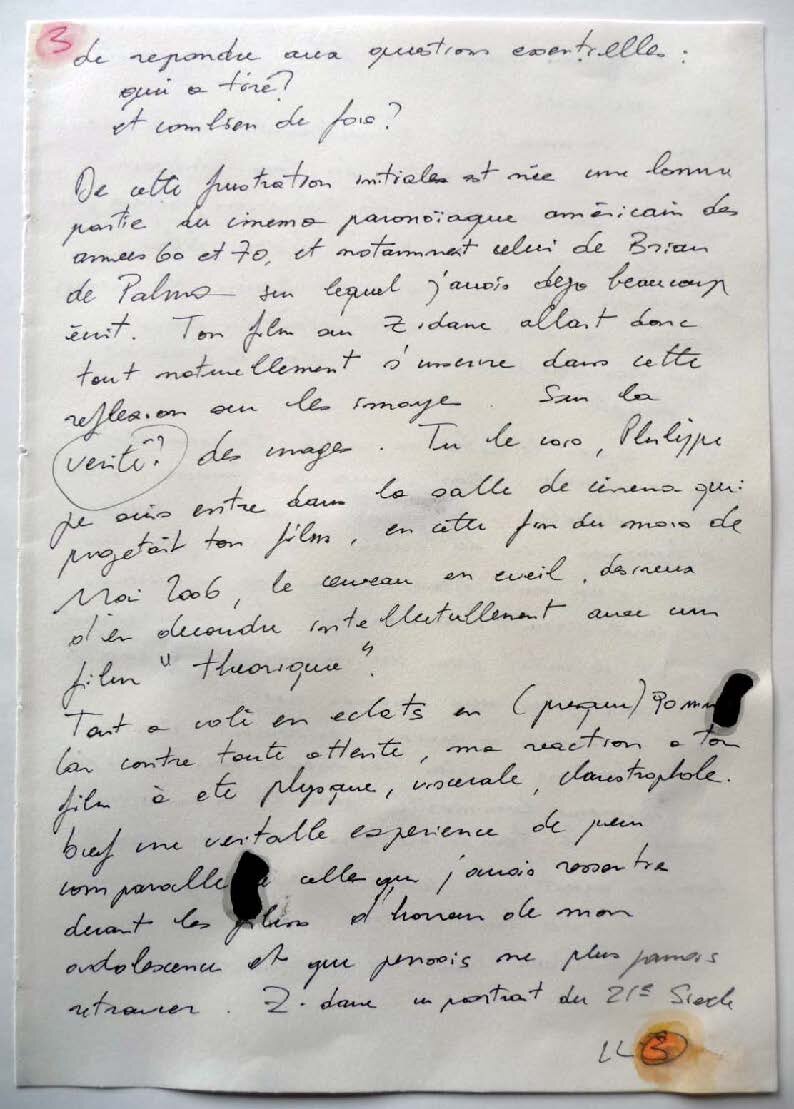 3
de repondre aux questions essentielles :
qui a tiré ?
et combien de fois ?
De cette frustration initiales est née une bonne
partie du cinema paranoïaque américain des
annees 60 et 70, et notamment celui de Brian
de Palma sur lequel j'avais dejà beaucoup
écrit. Ton film sur Zidane allait donc
tout naturellement s'inscrire dans cette
reflexion sur les image. Sur la
verité? des images. Tu le sais, Philippe
je suis entre dans la salle de cinema qui
projetait ton film, en cette fin du mois de
Mai 2006, le cerveau en eveil, desireux
d'en decoudre intellectuellement avec un
film " theorique ".
Tout a volé en eclats en (presque) 90 mn
Car contre toute attente, ma reaction a ton
film à ete physique, viscerale, claustrophobe.
bref une veritable experience de peur
comparable celle que j'avais ressentie
devant les films d'horreur de mon
adolescence et que pensais ne plus jamais
retrouver. Zidane un portrait du 21e Siecle
3